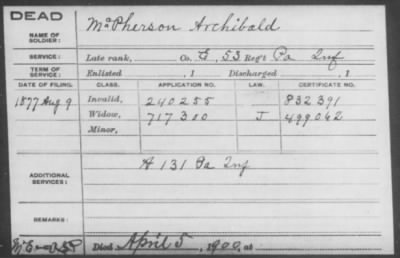 DEAD
NAME OF SOLDIER: McPherson Archibald
SERVICE: Late rank, Co. E, 53 Reg't Pa Inf
TERM OF SERVICE: Enlisted , 1 Discharged , 1
DATE OF FILING. CLASS. APPLICATION NO. LAW. CERTIFICATE NO.
1877 Aug 9 Invalid, 240255 832391
Widow, 717300 J 499062
Minor,
ADDITIONAL SERVICES: A 131 Pa Inf
REMARKS:
Died April 5, 1900, at